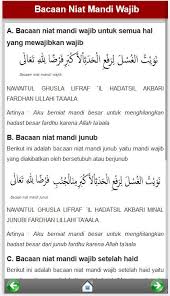 Bacaan Niat Mandi Wajib
A. Bacaan niat mandi wajib untuk semua hal
yang mewajibkan wajib
نَوَيْتُ الْغُسْلَ لِرَفْعِ الْحَدَثِ الْأَكْبَرِ فَرْضًا لِلّٰهِ تَعَالَى
Bacaan niat mandi wajib
NAWAITUL GHUSLA LIFRAF 'IL HADATSIL AKBARI
FARDHAN LILLAHI TA'AALA
Artinya : Aku berniat mandi besar untuk menghilangkan
hadast besar fardhu karena Allah ta'aala
B. Bacaan niat mandi junub
Berikut ini adalah bacaan niat mandi junub yatu mandi wajib
yang diakibatkan oleh bersetubuh atau berjunub
نَوَيْتُ الْغُسْلَ لِرَفْعِ الْحَدَثِ الْأَكْبَرِ مِنَ الْجَنَابَةِ فَرْضًا لِلّٰهِ تَعَالَى
Bacaan niat mandi junub
NAWAITUL GHUSLA LIFRAF 'IL HADATSIL AKBARI MINAL
JUNUBI FARDHAN LILLAHI TA'AALA.
Artinya : Aku berniat mandi besar untuk menghilangkan
hadast besar dari junub fardhu karena Allah ta'aala
C. Bacaan niat mandi wajib setelah haid
Berikut ini adalah bacaan niat mandi wajib setelah haid yaitu